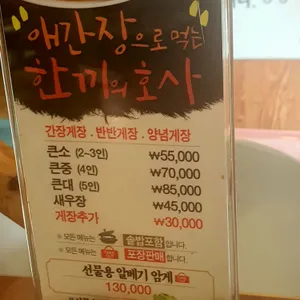 애간장으로 먹는
한끼의 호사
간장게장 . 반반게장 . 양념게장
큰소 (2~3인) ₩55,000
큰중 (4인) ₩70,000
큰대 (5인) ₩85,000
새우장 ₩45,000
게장추가 ₩30,000
※ 모든 메뉴는 솥밥포함 입니다.
※ 모든 메뉴는 포장판매 합니다.
선물용 알배기 암게
130,000